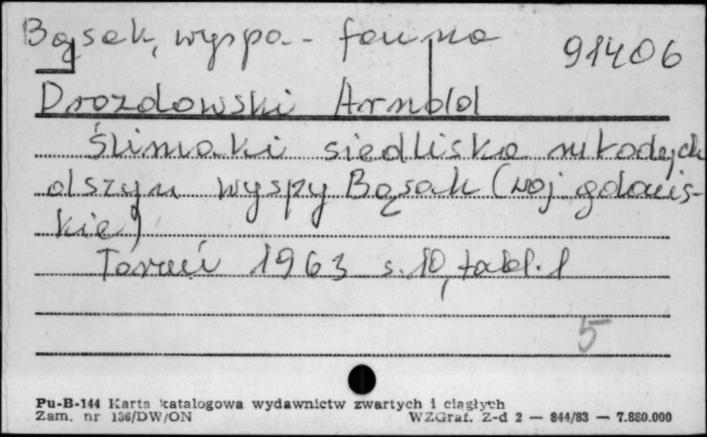 Bąsak, wyspa - fauna
91406
Drozdowski Arnold
Ślimaki siedliska młodych
olszyn wyspy Bąsak (woj gdańs-
kie)
Toruń 1963 s. 10, tabl. 1
5
Pu-B-144 Karta katalogowa wydawnictw zwartych i ciągłych
Zam. nr 136/DW/ON WZGraf. Z-d 2 — 844/83 — 7.880.000